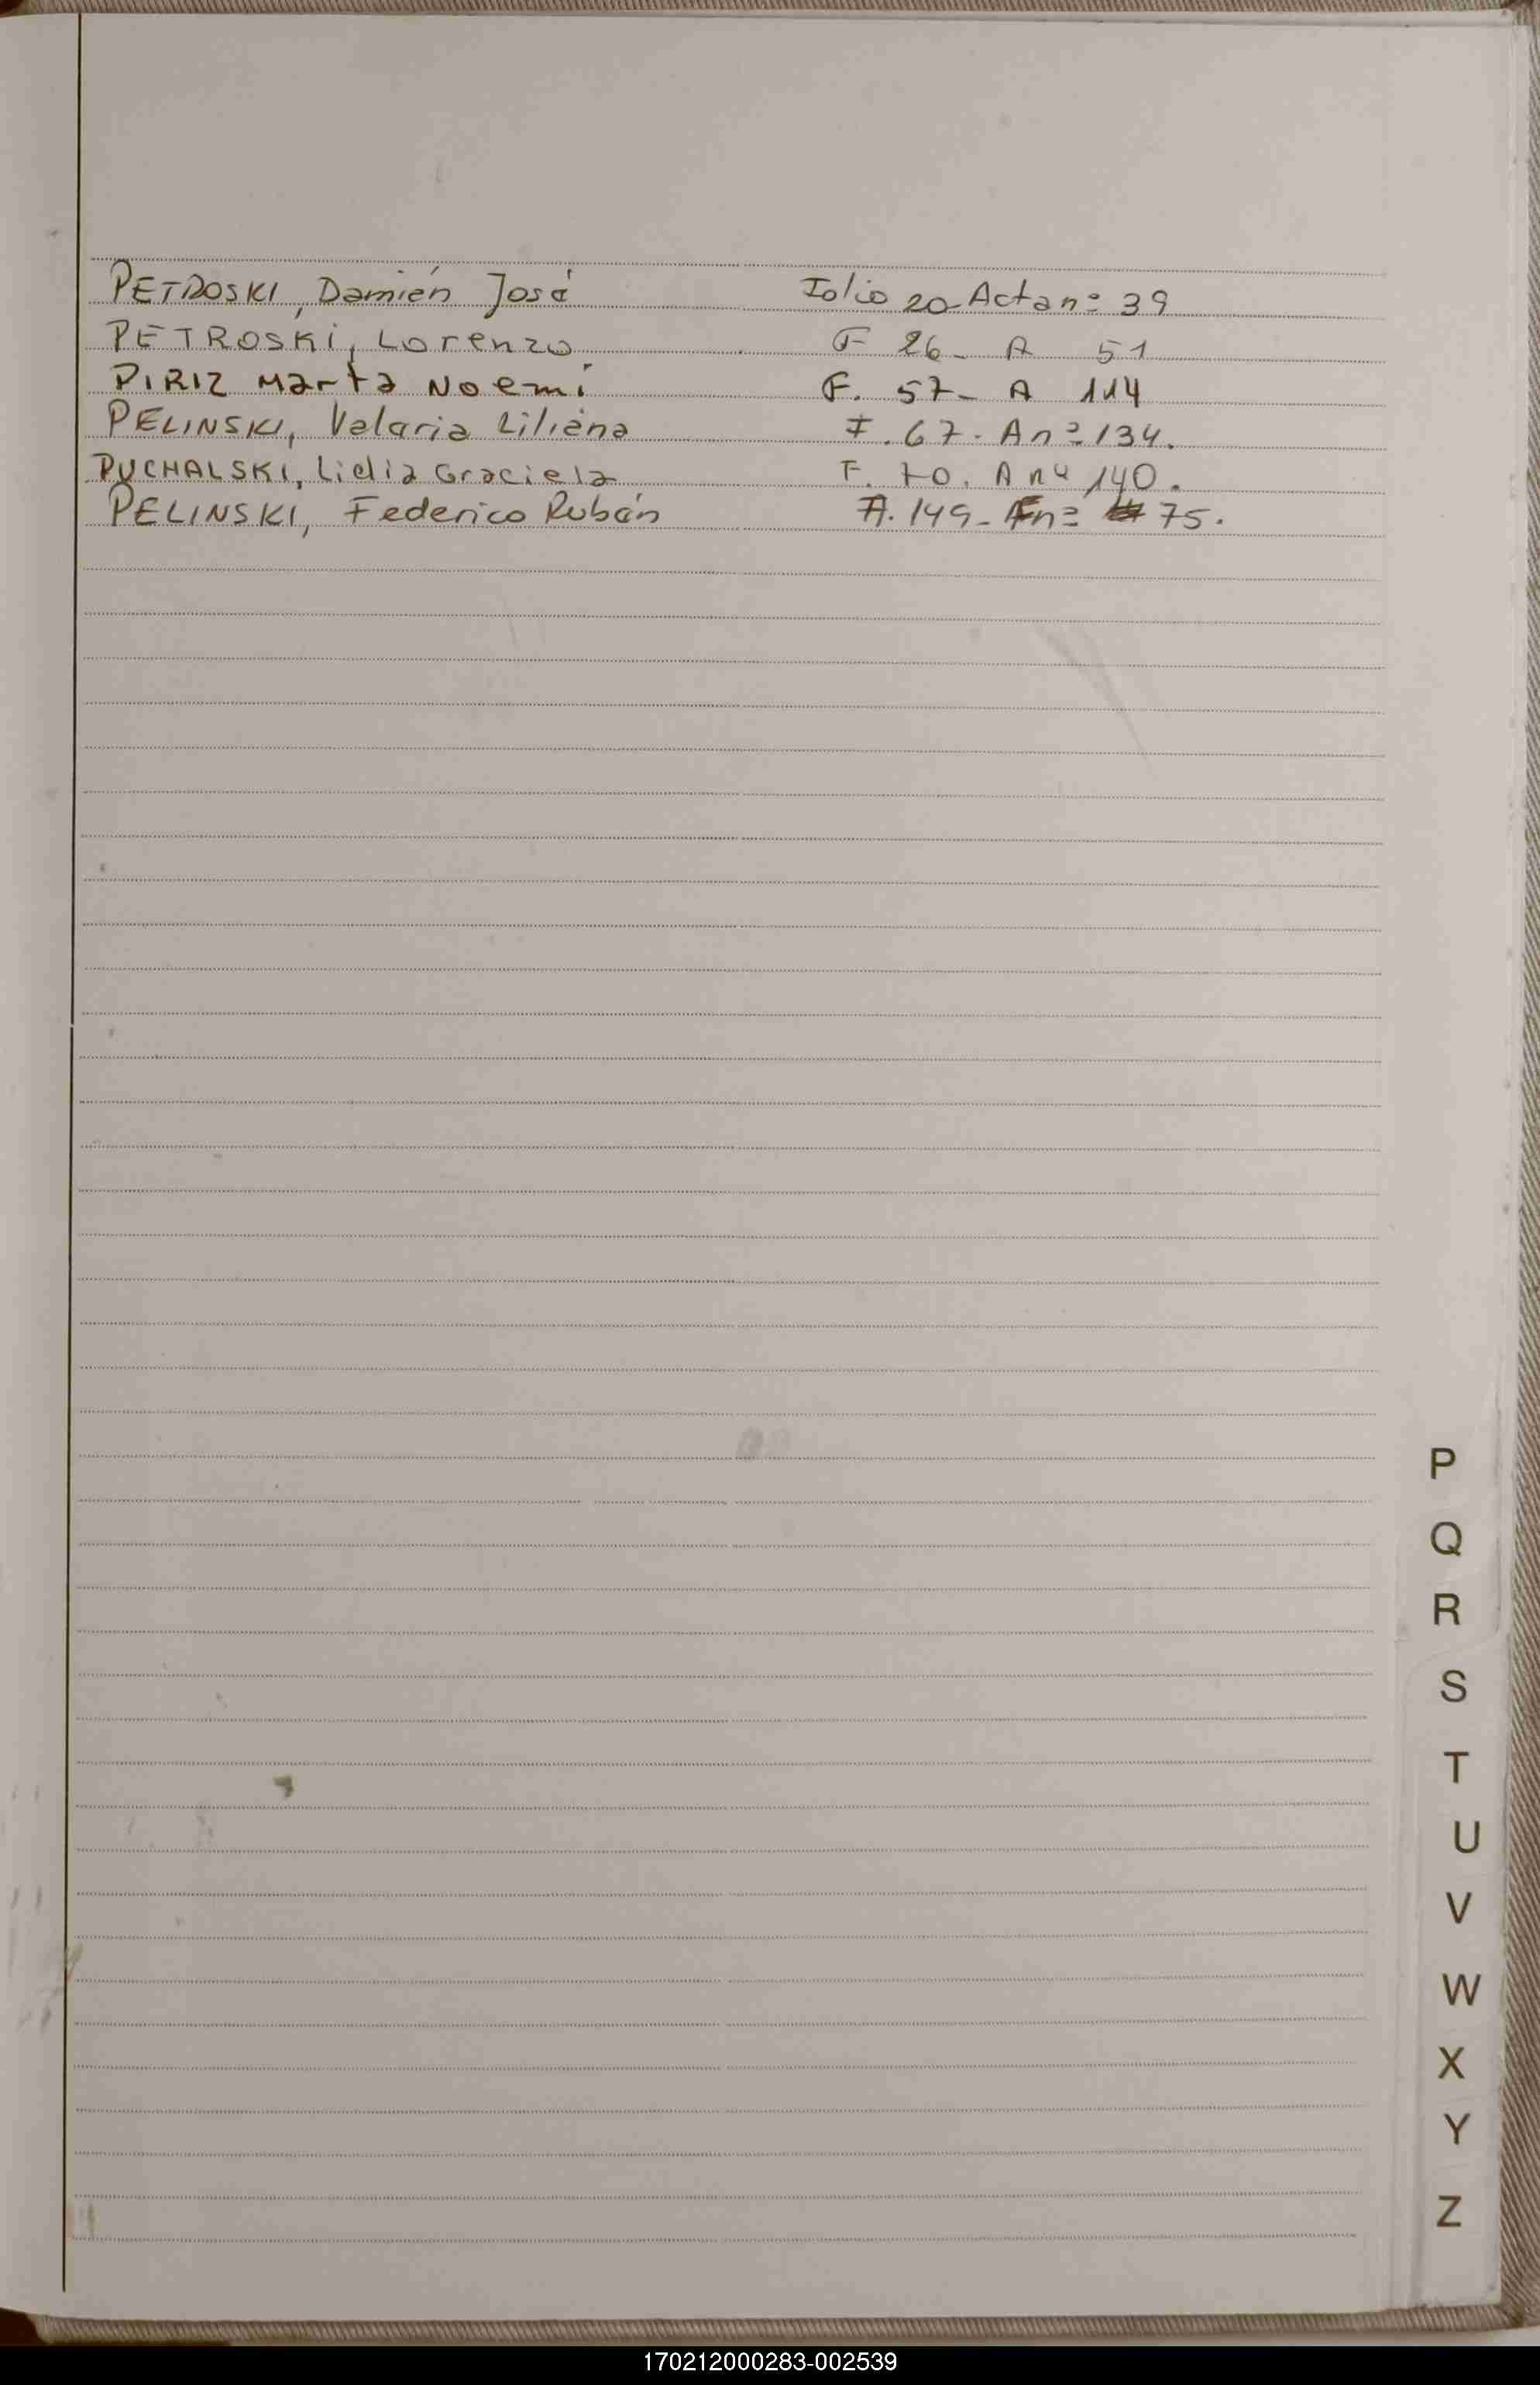 PETROSKI, Damián José Folio 20- Acta nº 39
PETROSKi, Lorenzo F 26- A 51
PIRIZ Marta Noemí F. 57- A 114
PELINSKI, Valaria Liliana F. 67- A nº 134.
PUCHALSKI, Lidia Graciela F. 70. A nº 140.
PELINSKI, Federico Rubén A. 149- F nº 75.
P
Q
R
S
T
U
V
W
X
Y
Z
170212000283-002539